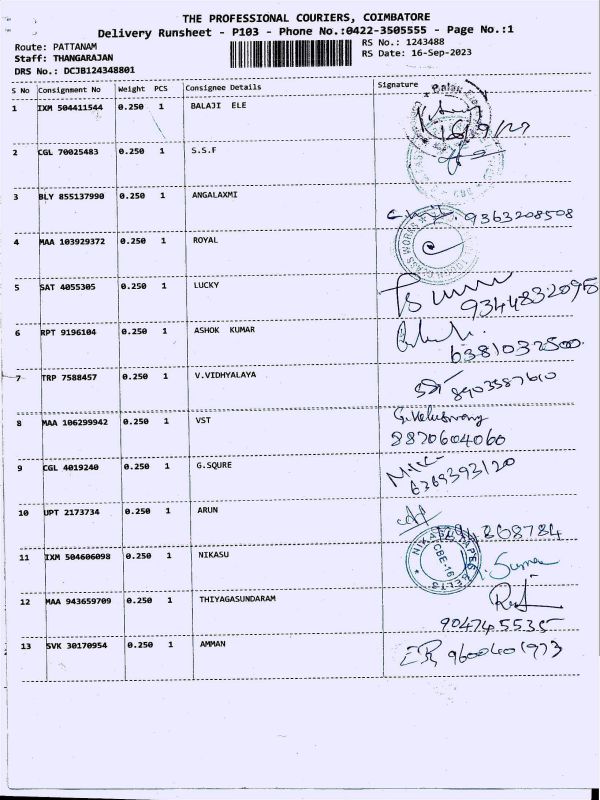 THE PROFESSIONAL COURIERS, COIMBATORE
Delivery Runsheet - P103 - Phone No.:0422-3505555 - Page No.:1
Route: PATTANAM RS No.: 1243488
Staff: THANGARAJAN RS Date: 16-Sep-2023
DRS No.: DCJB124348801
S No Consignment No Weight PCS Consignee Details Signature
1 IXM 504411544 0.250 1 BALAJI ELE
2 CGL 70025483 0.250 1 S.S.F
3 BLY 855137990 0.250 1 ANGALAXMI 9363208508
4 MAA 103929372 0.250 1 ROYAL
5 SAT 4055305 0.250 1 LUCKY
9344832095
6 RPT 9196104 0.250 1 ASHOK KUMAR
6381032500
7 TRP 7588457 0.250 1 V.VIDHYALAYA 8903587610
8 MAA 106299942 0.250 1 VST
8870604060
9 CGL 4019240 0.250 1 G.SQURE
6369393120
10 UPT 2173734 0.250 1 ARUN
868784
11 IXM 504606098 0.250 1 NIKASU NIKASU TAPES BELTS CBE-16
12 MAA 943659709 0.250 1 THIYAGASUNDARAM
9047455535
13 SVK 30170954 0.250 1 AMMAN 9600401973